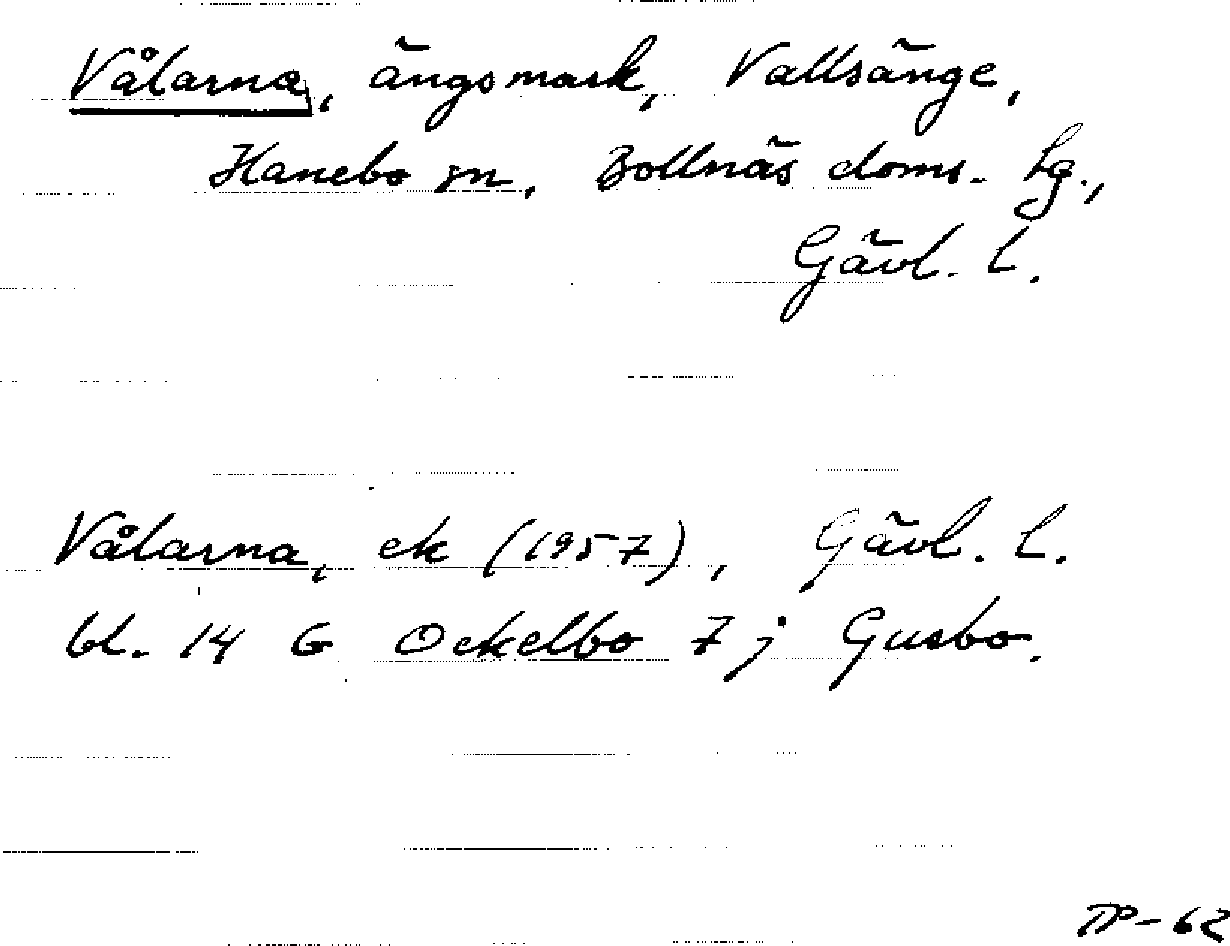 Vålarna, ängsmark, Vallsänge,
Hanebo sn, Bollnäs doms. hg.,
Gävl. l.
Vålarna, ek (1957), Gävl. l.
bl. 14 G Ockelbo 7 j Gusbo.
TP-62